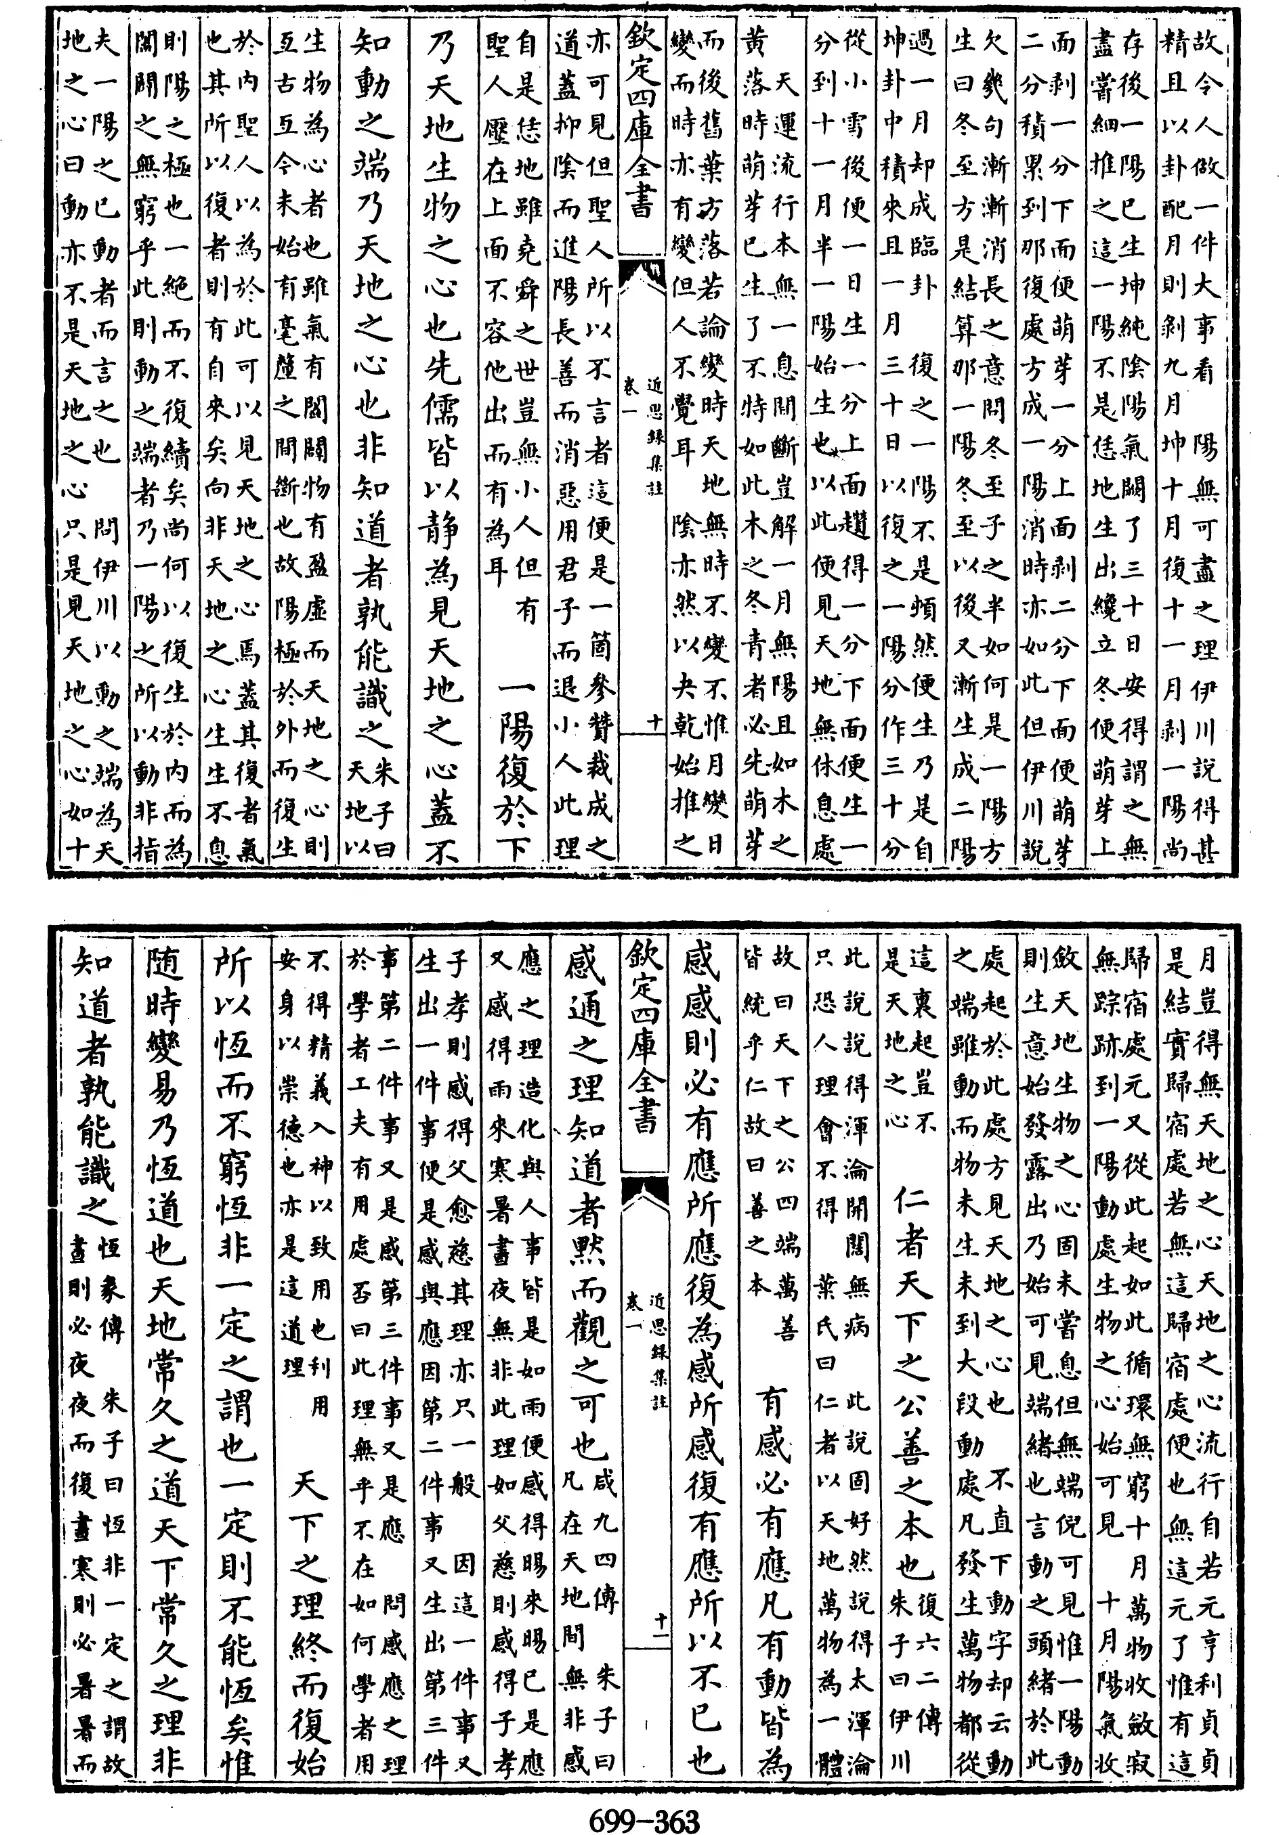 故今人做一件大事看　陽無可盡之理伊川説得甚
精且以卦配月則剝九月坤十月復十一月剥一陽尚
存後一陽已生坤純陰陽氣闕了三十日安得謂之無
盡嘗細推之這一陽不是恁地生出纔立冬便萌芽上
面剥一分下而便萌芽一分上面剥二分下面便萌芽
二分積累到那復處方成一陽消時亦如此但伊川説
欠幾句漸漸消長之意問冬至子之半如何是一陽方
生曰冬至方是結算那一陽冬至以後又漸生成二陽
過一月却成臨卦　復之一陽不是頓然便生乃是自
坤卦中積來且一月三十日以復之一陽分作三十分
從小雪後便一日生一分上面趲得一分下面便生一
分到十一月半一陽始生也以此便見天地無休息處
天運流行本無一息間斷豈解一月無陽且如木之
黄落時萌芽已生了不特如此木之冬青者必先萌芽
而後舊葉方落若論變時天地無時不變不惟月變日
變而時亦有變但人不覺耳　陰亦然以夬乾始推之
欽定四庫全書
近思録集註
卷一
十
亦可見但聖人所以不言者這便是一箇參贊裁成之
道蓋抑陰而進陽長善而消惡用君子而退小人此理
自是恁地雖堯舜之世豈無小人但有
聖人壓在上面不容他出而有為耳
一陽復於下
乃天地生物之心也先儒皆以静為見天地之心蓋不
知動之端乃天地之心也非知道者孰能識之
朱子曰
天地以
生物為心者也雖氣有闔闢物有盈虛而天地之心則
亙古亙今未始有毫釐之間斷也故陽極於外而復生
於内聖人以為於此可以見天地之心焉蓋其復者氣
也其所以復者則有自來矣向非天地之心生生不息
則陽之極也一絶而不復續矣尚何以復生於内而為
闔闢之無窮乎此則動之端者乃一陽之所以動非指
夫一陽之已動者而言之也　問伊川以動之端為天
地之心曰動亦不是天地之心只是見天地之心如十
月豈得無天地之心天地之心流行自若元亨利貞貞
是結實歸宿處若無這歸宿處便也無這元了惟有這
歸宿處元又從此起如此循環無窮十月萬物收斂寂
無踪跡到一陽動處生物之心始可見　十月陽氣收
斂天地生物之心固未嘗息但無端倪可見惟一陽動
則生意始發露出乃始可見端緒也言動之頭緒於此
處起於此處方見天地之心也　不直下動字却云動
之端雖動而物未生未到大段動處凡發生萬物都從
這裏起豈不
是天地之心
仁者天下之公善之本也
復六二傳
朱子曰伊川
此説説得渾淪開闊無病　此説固好然説得太渾淪
只恐人理會不得　葉氏曰仁者以天地萬物為一體
故曰天下之公四端萬善
皆統乎仁故曰善之本
有感必有應凡有動皆為
感感則必有應所應復為感所感復有應所以不已也
欽定四庫全書
近思録集註
卷一
十一
感通之理知道者默而觀之可也
咸九四傳　朱子曰
凡在天地間無非感
應之理造化與人事皆是如雨便感得暘來暘已是應
又感得雨來寒暑晝夜無非此理如父慈則感得子孝
子孝則感得父愈慈其理亦只一般　因這一件事又
生出一件事便是感與應因第二件事又生出第三件
事第二件事又是感第三件事又是應　問感應之理
於學者工夫有用處否曰此理無乎不在如何學者用
不得精義入神以致用也利用
安身以崇德也亦是這道理
天下之理終而復始
所以恆而不窮恆非一定之謂也一定則不能恆矣惟
随時變易乃恆道也天地常久之道天下常久之理非
知道者孰能識之
恆彖傳　朱子曰恆非一定之謂故
晝則必夜夜而復晝寒則必暑暑而
699-363